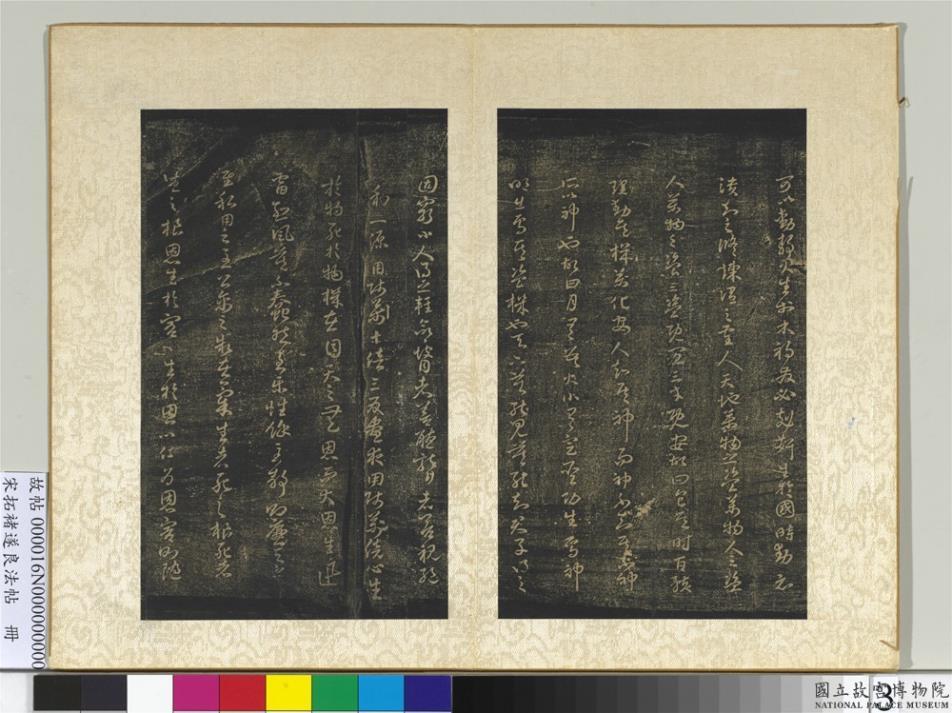 可以動靜火生於木禍發必剋姧生於國時動必
潰知之修煉謂之聖人天地萬物之盜萬物人之盜
人萬物之盜三盜既宜三才既安故曰食其時百骸
理動其機萬化安人知其神而神不知不神
所以神也故日月有數大小有定聖功生焉神
明出焉其盜機也天下莫能見莫能知君子得之
固窮小人得之輕命瞽者善聽聾者善視絕
利一源用師十倍三反晝夜用師萬倍心生
於物死於物機在目天之無恩而大恩生迅
雷烈風莫不蠢然至樂性餘至靜則廉天之
至私用之至公禽之制在氣生者死之根死者
生之根恩生於害害生於恩
故帖 000016N000000000
宋拓褚遂良法帖 冊
國立故宮博物院
NATIONAL PALACE MUSEUM
3